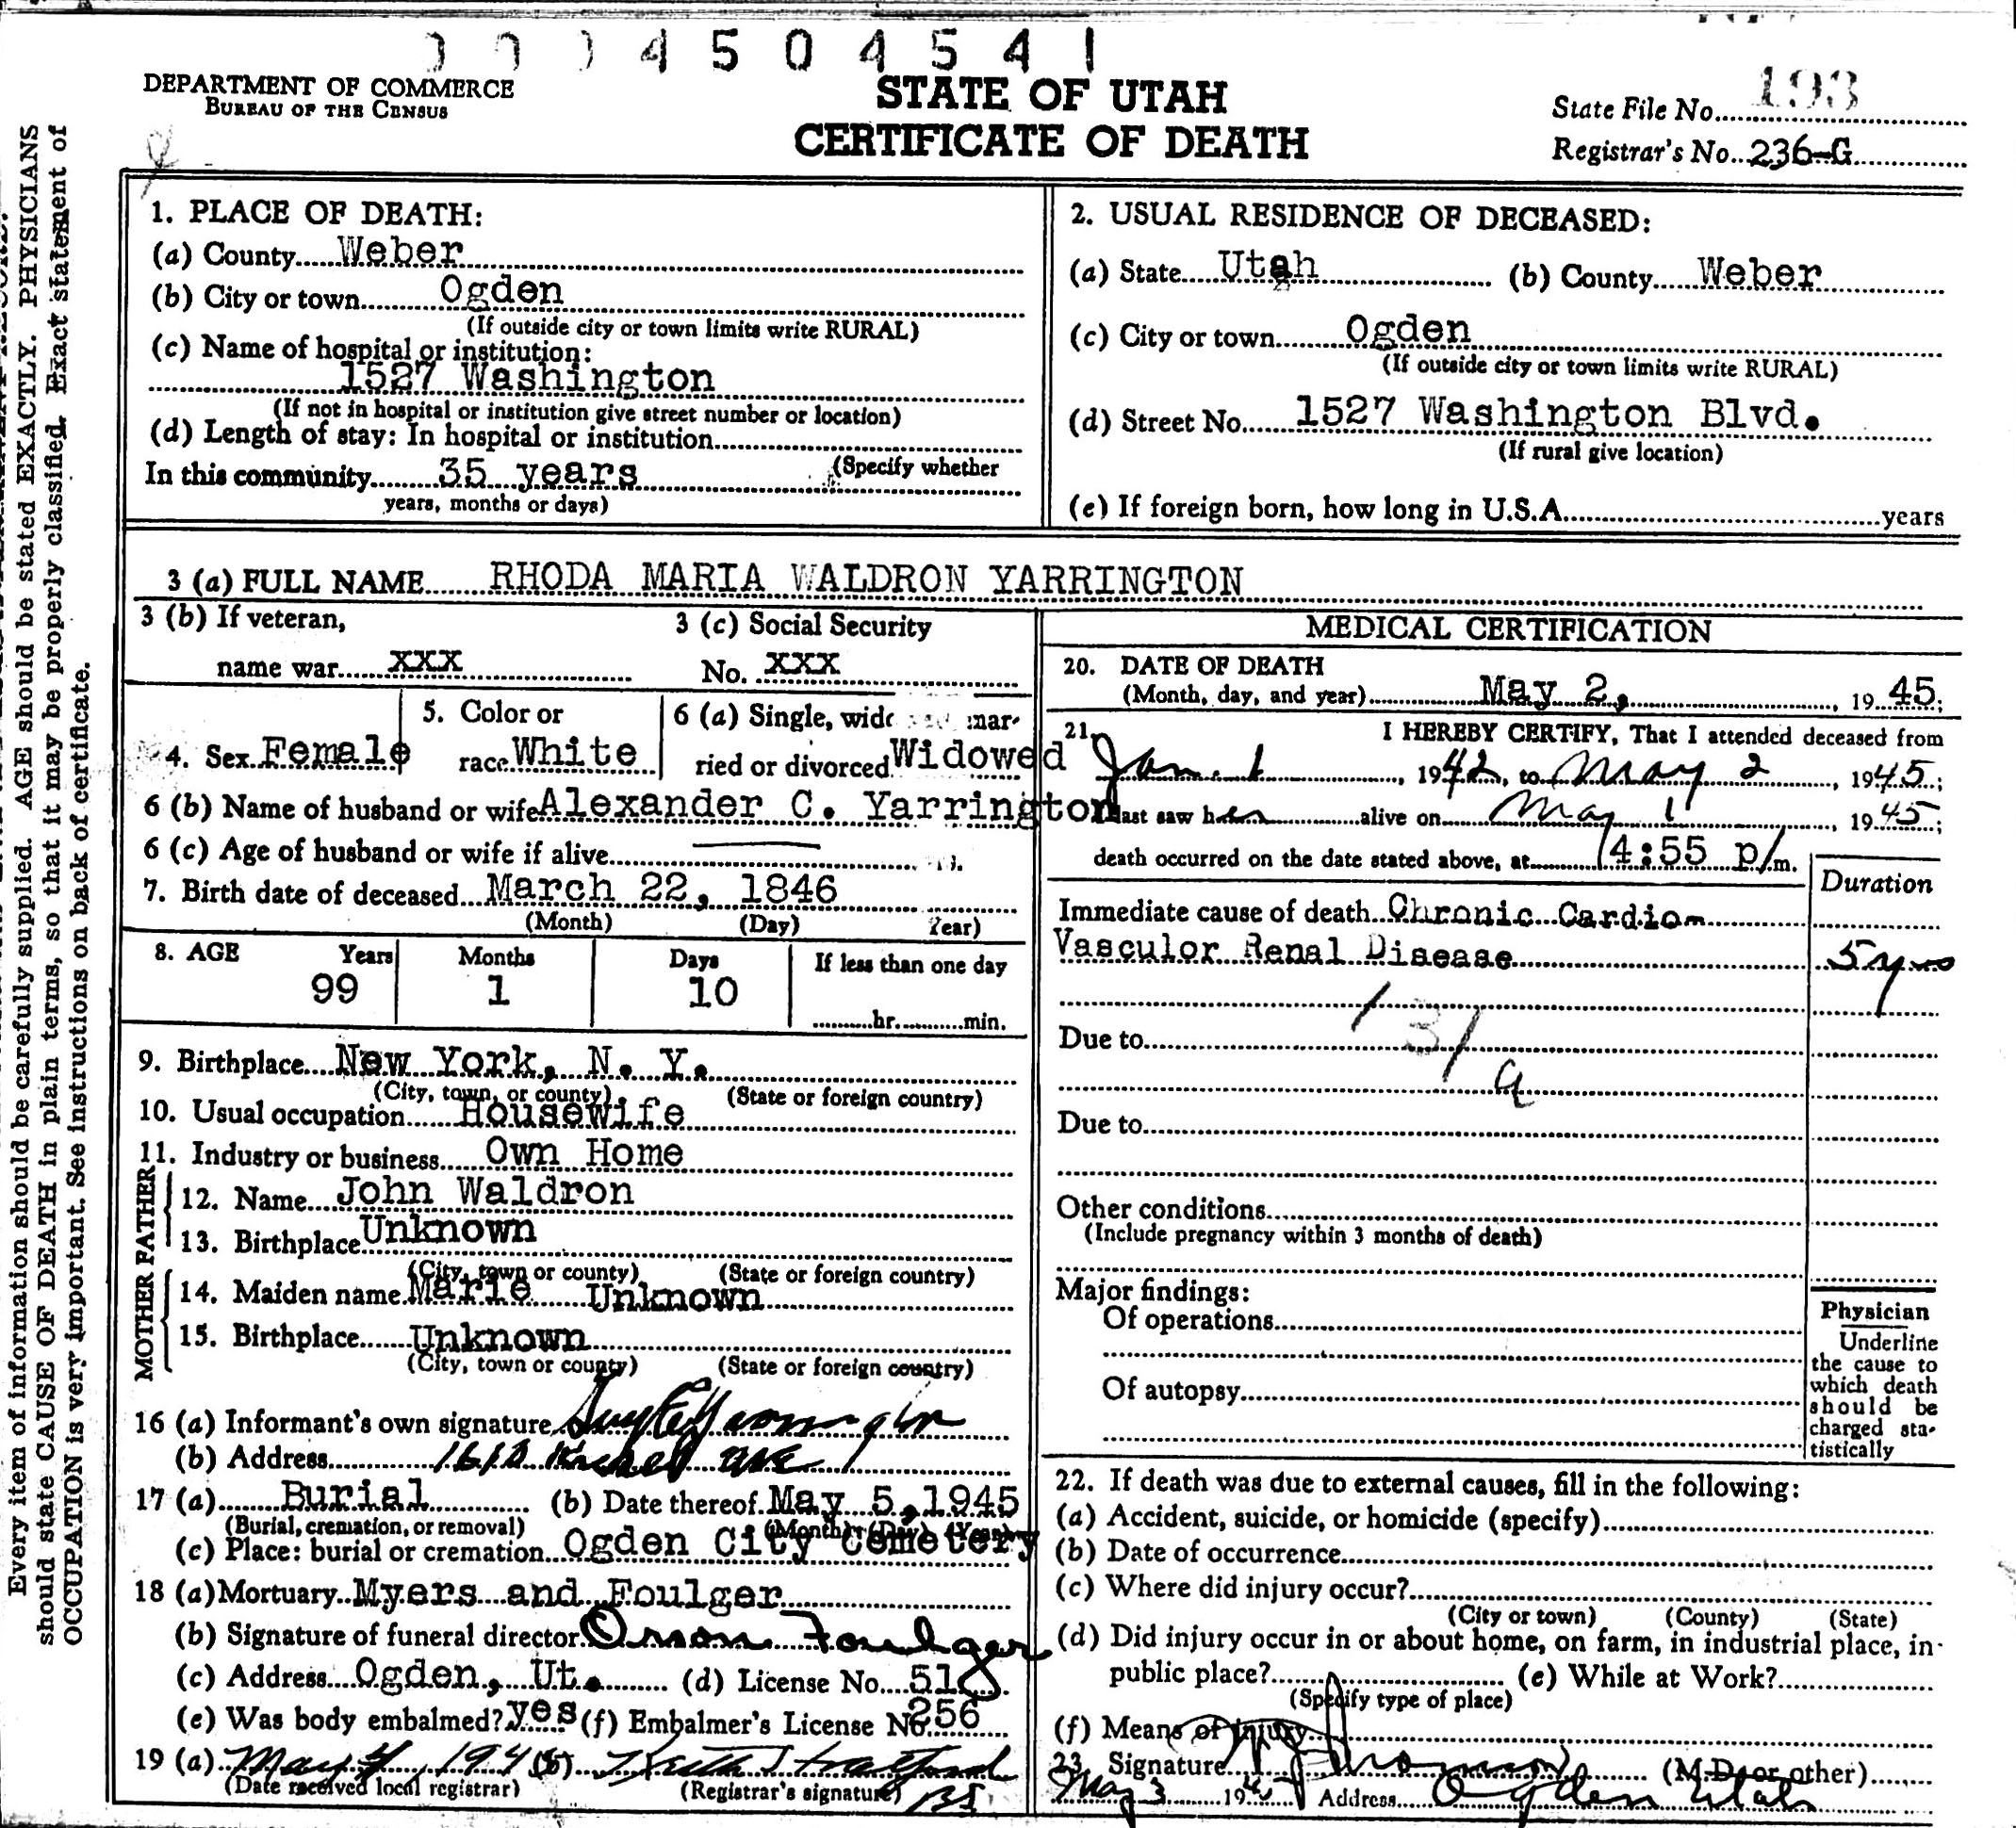 4 5 0 4 5 4 1
DEPARTMENT OF COMMERCE
BUREAU OF THE CENSUS
STATE OF UTAH
CERTIFICATE OF DEATH
State File No. 193
Registrar's No. 236-G
Every item of information should be carefully supplied. AGE should be stated EXACTLY. PHYSICIANS
should state CAUSE OF DEATH in plain terms, so that it may be properly classified. Exact statement of
OCCUPATION is very important. See instructions on back of certificate.
1. PLACE OF DEATH:
(a) County Weber
(b) City or town Ogden
(If outside city or town limits write RURAL)
(c) Name of hospital or institution:
1527 Washington
(If not in hospital or institution give street number or location)
(d) Length of stay: In hospital or institution
(Specify whether
In this community 35 years
years, months or days)
2. USUAL RESIDENCE OF DECEASED:
(a) State Utah (b) County Weber
(c) City or town Ogden
(If outside city or town limits write RURAL)
(d) Street No. 1527 Washington Blvd.
(If rural give location)
(e) If foreign born, how long in U.S.A. years
3 (a) FULL NAME RHODA MARIA WALDRON YARRINGTON
3 (b) If veteran, 3 (c) Social Security
name war XXX No. XXX
4. Sex Female 5. Color or race White 6 (a) Single, widowed, married or divorced Widowed
6 (b) Name of husband or wife Alexander C. Yarrington
6 (c) Age of husband or wife if alive
7. Birth date of deceased March 22, 1846
(Month) (Day) Year)
8. AGE Years Months Days If less than one day
99 1 10
hr. min.
9. Birthplace New York, N. Y.
(City, town, or county) (State or foreign country)
10. Usual occupation Housewife
11. Industry or business Own Home
FATHER
12. Name John Waldron
13. Birthplace Unknown
(City, town or county) (State or foreign country)
MOTHER
14. Maiden name Marie Unknown
15. Birthplace Unknown
(City, town or county) (State or foreign country)
16 (a) Informant's own signature
(b) Address ave
17 (a) Burial (b) Date thereof May 5, 1945
(Burial, cremation, or removal) (Month) (Day) (Year)
(c) Place: burial or cremation Ogden City Cemetery
18 (a) Mortuary Myers and Foulger
(b) Signature of funeral director Orson Foulger
(c) Address Ogden, Ut. (d) License No. 518
(e) Was body embalmed? yes (f) Embalmer's License No. 256
19 (a) May 4, 194 (b)
(Date received local registrar) (Registrar's signature)
MEDICAL CERTIFICATION
20. DATE OF DEATH
(Month, day, and year) May 2, 1945;
21. I HEREBY CERTIFY, That I attended deceased from
Jan. 1, 1942, to May 2 1945;
last saw her alive on May 1, 1945;
death occurred on the date stated above, at 4:55 p/m.
Duration
Immediate cause of death Chronic Cardio-
Vasculor Renal Disease 5 yrs
131
a
Due to
Due to
Other conditions
(Include pregnancy within 3 months of death)
Major findings:
Of operations
Of autopsy
Physician
Underline
the cause to
which death
should be
charged sta-
tistically
22. If death was due to external causes, fill in the following:
(a) Accident, suicide, or homicide (specify)
(b) Date of occurrence
(c) Where did injury occur?
(City or town) (County) (State)
(d) Did injury occur in or about home, on farm, in industrial place, in
public place? (e) While at Work?
(Specify type of place)
(f) Means of injury
23. Signature (M.D. or other)
May 3 194 Address Ogden Utah